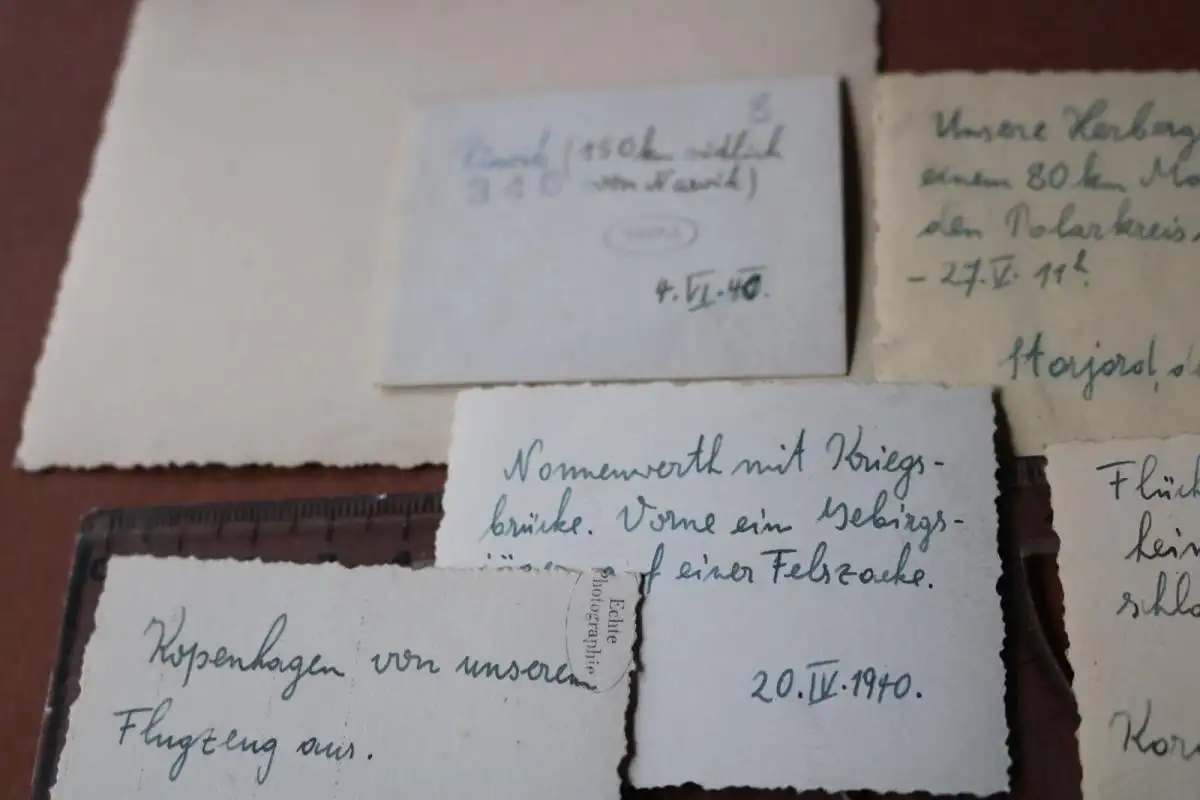 8
(150 km südlich
von Narvik)
4.VI.40.
Unsere Herberg
einem 80 km Ma
den Polarkreis
- 27.V. 11h
Storjord,
Nonnenwerth mit Kriegs-
brücke. Vorne ein Gebirgs-
jäger auf einer Felszacke.
20.IV.1940.
Echte
Photographie
Kopenhagen von unserem
Flugzeug aus.
Flück
hein
schlo